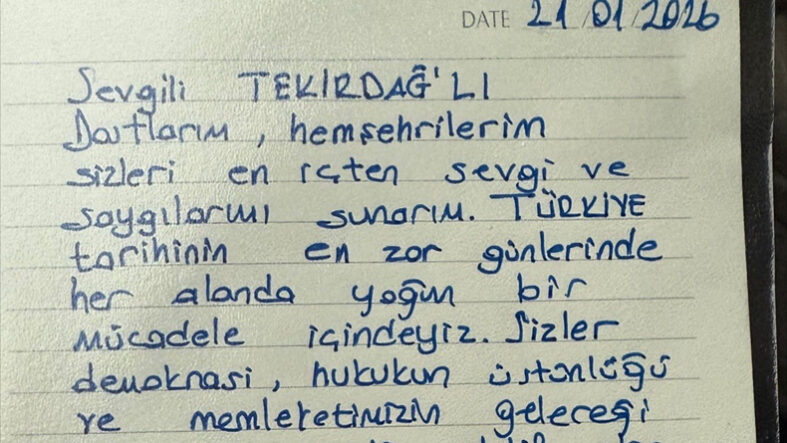 DATE 21/01/2026
Sevgili TEKİRDAĞ'LI
Dostlarım, hemşehrilerim
sizleri en içten sevgi ve
saygılarımı sunarım. TÜRKİYE
tarihinin en zor günlerinde
her alanda yoğun bir
mücadele içindeyiz. Sizler
demokrasi, hukukun üstünlüğü
ve memleketimizin geleceği